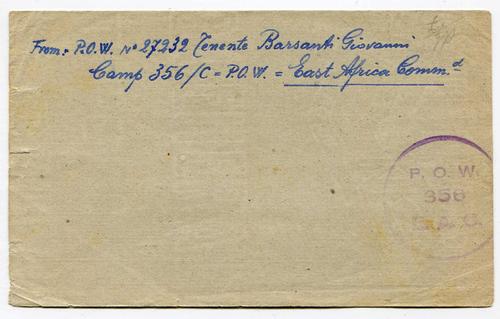 From:- P.O.W. No 27232 Tenente Barsanti Giovanni
Camp 356/C = P.O.W. = East Africa Commd
P. O. W.
356
E. A. C.